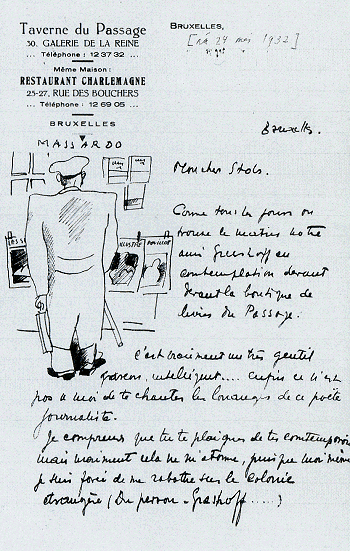 Taverne du Passage
30, GALERIE DE LA REINE
... Téléphone : 12 37 32 ...
Même Maison :
RESTAURANT CHARLEMAGNE
25-27, RUE DES BOUCHERS
... Téléphone : 12 69 05 ...
BRUXELLES
BRUXELLES,
[ná 24 mei 1932]
MASSARDO
Bruxelles.
Mon cher Stols.
Comme tous les jours on
trouve le matin notre
ami Greshoff en
contemplation devant
devant la boutique de
livres du Passage.
C'est vraiment un très gentil
garçon, intelligent.... enfin ce n'est
pas à moi de te chanter les louanges de ce poète
journaliste.
Je comprends que tu te plaignes de tes contemporains
mais vraiment cela ne m'étonne, puisque moi même
je suis forcé de me rabattre sur la colonie
étrangère (Du perron - Greshoff .....)